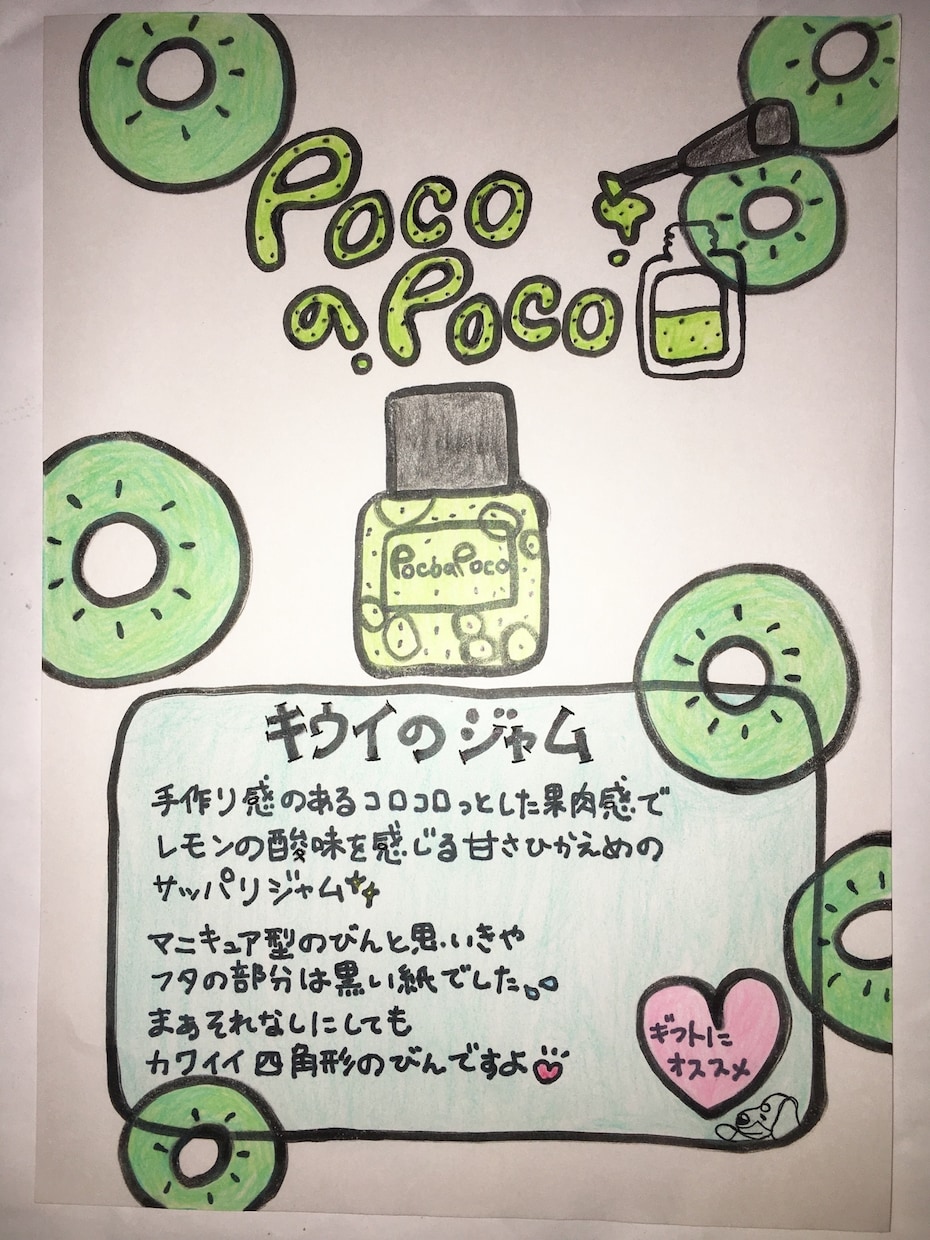 Poco
a Poco
Poco a Poco
キウイのジャム
手作り感のあるコロコロっとした果肉感で
レモンの酸味を感じる甘さひかえめの
サッパリジャム
マニキュア型のびんと思いきや
フタの部分は黒い紙でした。
まぁそれなしにしても
カワイイ四角形のびんですよ
ギフトに
オススメ